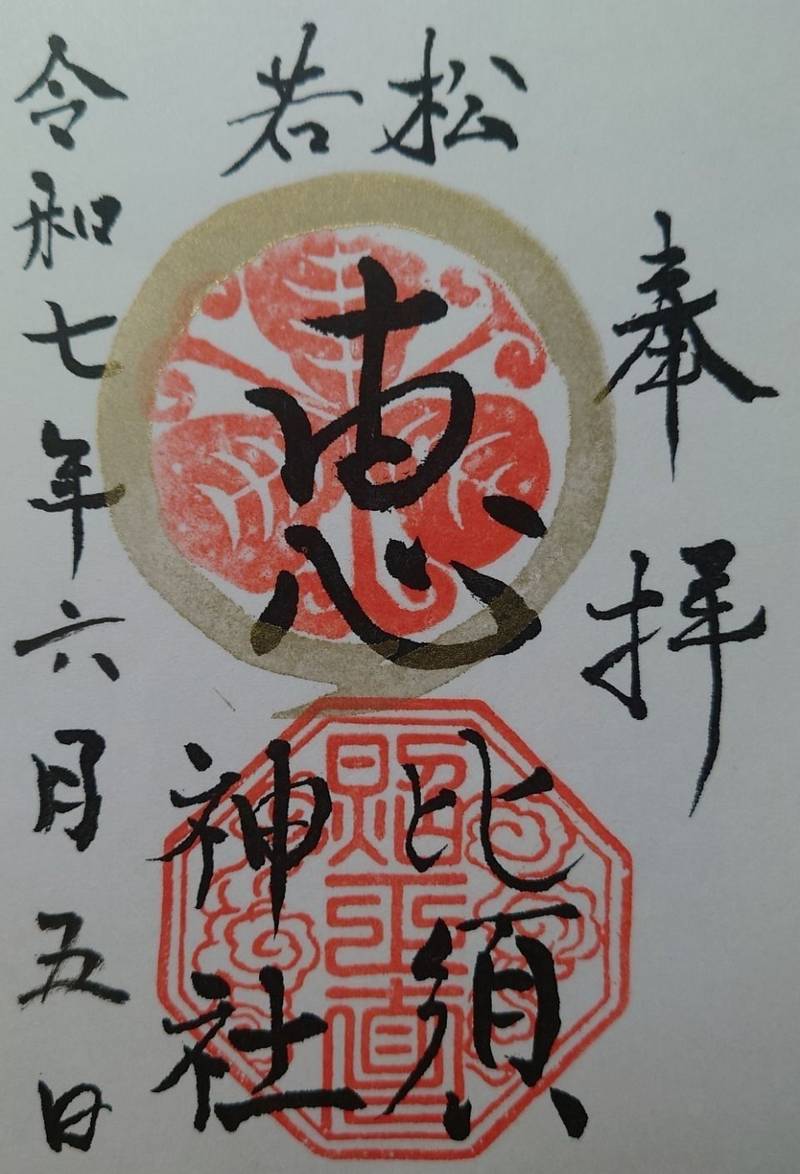 奉拝
若松
恵
比須
神社
令和七年六月五日